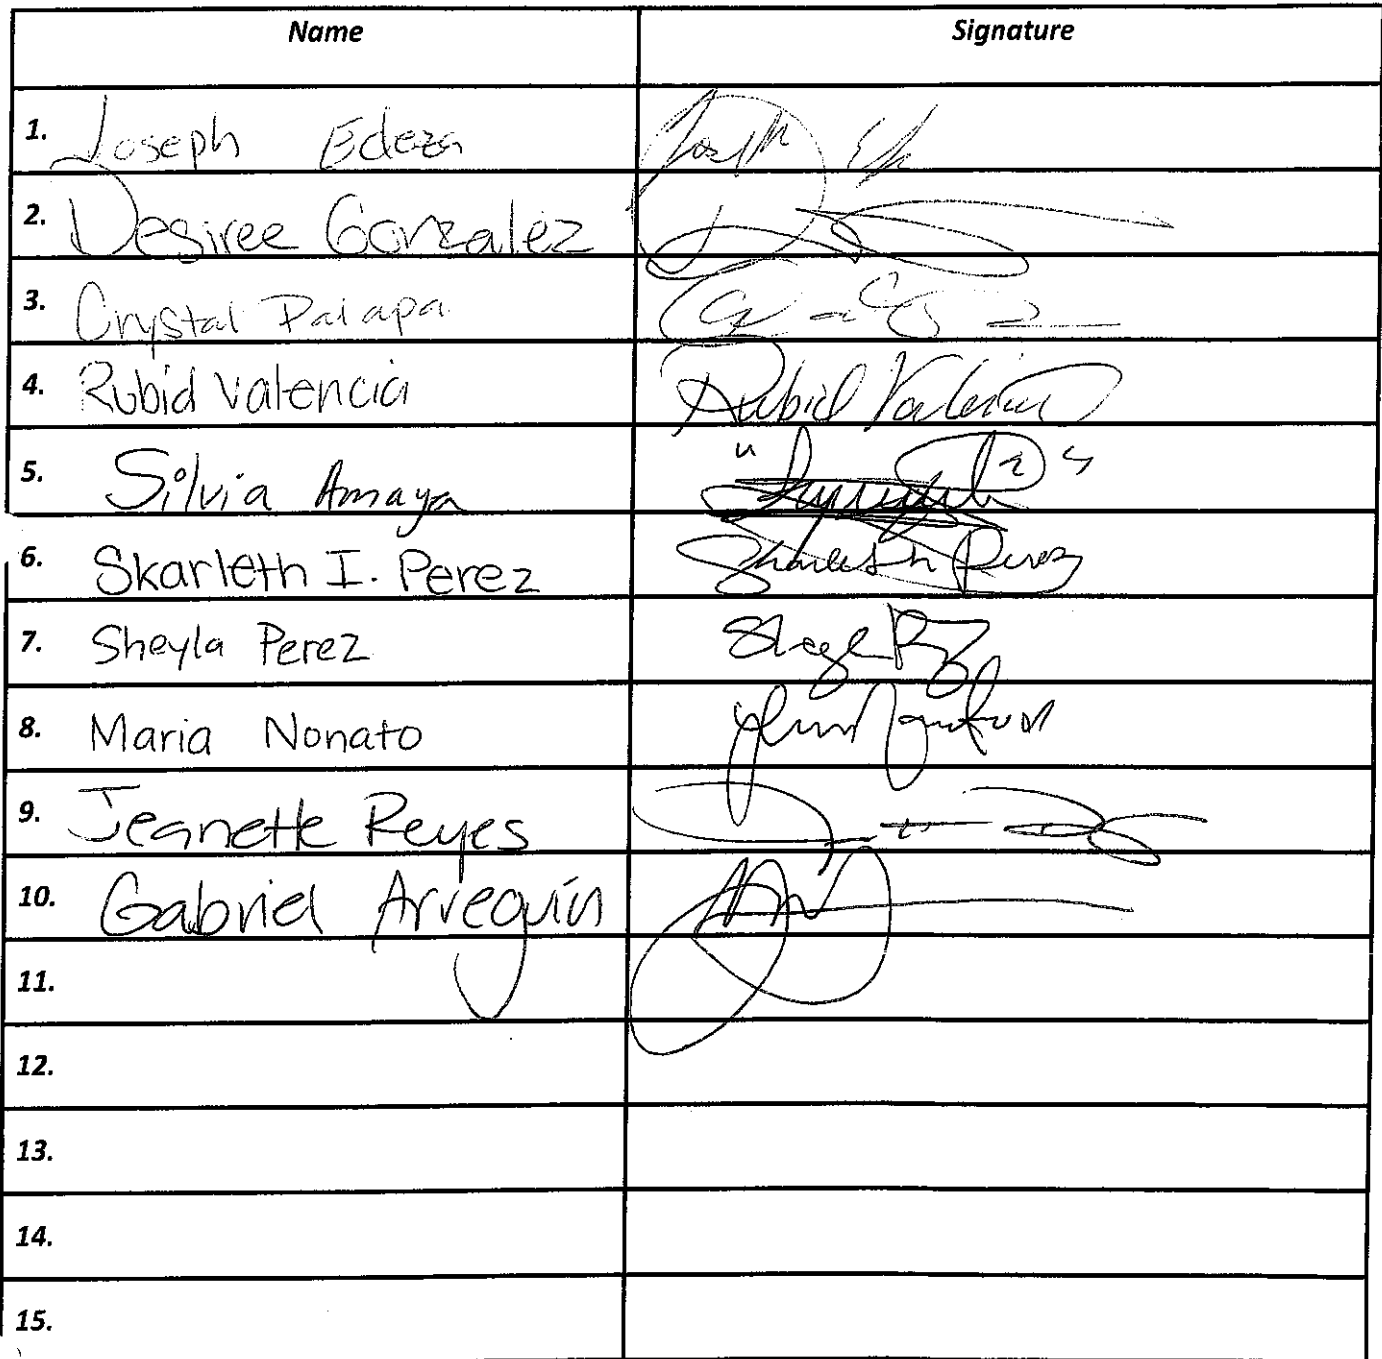 Name Signature
1. Joseph Edeza Joseph
2. Desiree Gonzalez
3. Crystal Palapa
4. Rubid Valencia Rubid Valencia
5. Silvia Amaya
6. Skarleth I. Perez Skarleth Perez
7. Sheyla Perez
8. Maria Nonato
9. Jeanette Reyes
10. Gabriel Arreguín
11.
12.
13.
14.
15.